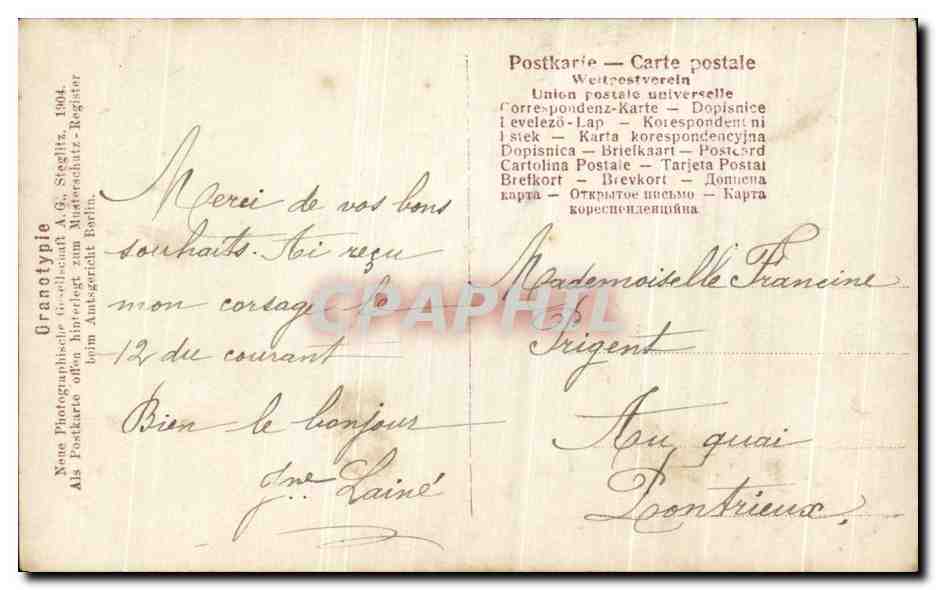 Granotypie
Neue Photographische Gesellschaft A.G., Steglitz, 1904.
Als Postkarte offen hinterlegt zum Musterschutz-Register
beim Amtsgericht Berlin.
Merci de vos bons
souhaits. Ai reçu
mon corsage le
12 du courant
Bien le bonjour
Jne Lainé
Postkarte — Carte postale
Weltpostverein
Union postale universelle
Correspondenz-Karte — Dopisnice
Levelező-Lap — Korespondentni
listek — Karta korespondencyjna
Dopisnica — Briefkaart — Postcard
Cartolina Postale — Tarjeta Postal
Brefkort — Brevkort — Дописна
карта — Открытое письмо — Карта
кореспенденційна
Mademoiselle Francine
Prigent
Au quai
Pontrieux.
CPAPHIL